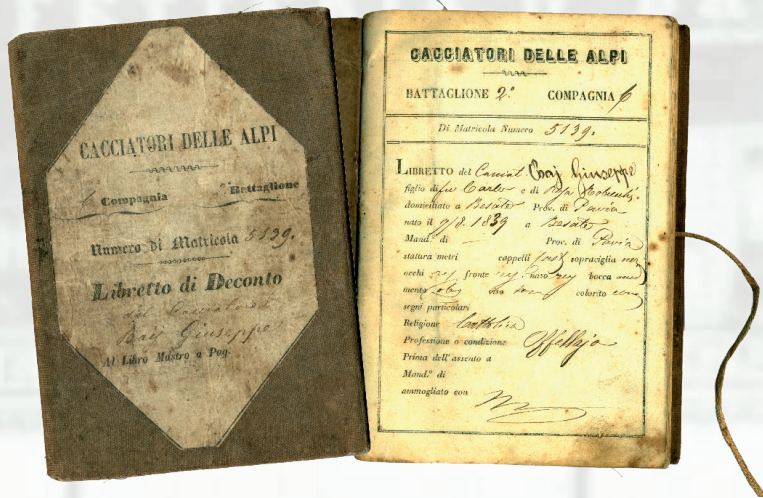 CACCIATORI DELLE ALPI
Compagnia Battaglione
Numero di Matricola 5139.
Libretto di Deconto
del
Giuseppe
Al Libro Mastro a Pag.
CACCIATORI DELLE ALPI
BATTAGLIONE 2º COMPAGNIA 6
Di Matricola Numero 5139.
LIBRETTO del Giuseppe
figlio di fu Carlo e di
domiciliato a Besate Prov. di Pavia
nato il 9/8. 1839 a Besate
Mand.º di Prov. di Pavia
statura metri cappelli sopraciglia
occhi fronte naso bocca
mento colorito
segni particolari
Religione Cattolica
Professione o condizione Offellajo
Prima dell'assento a
Mand.º di
ammogliato con